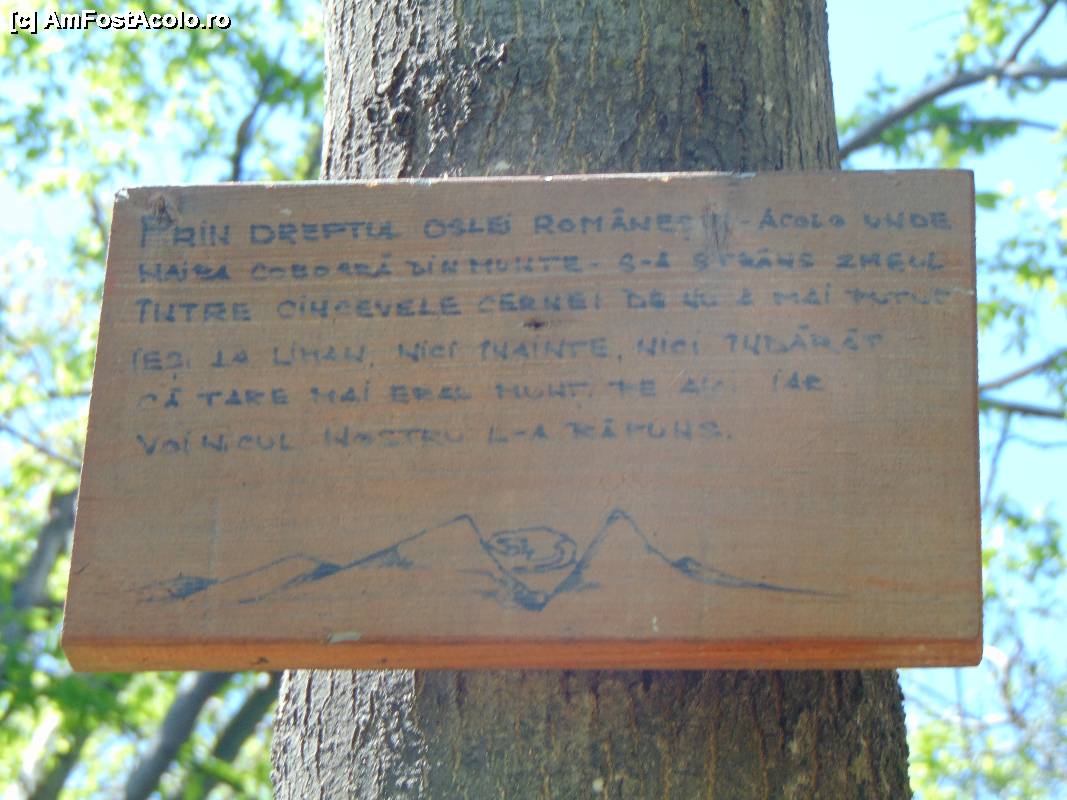 [c] AmFostAcolo.ro
PRIN DREPTUL OSLEI ROMÂNEȘTI - ACOLO UNDE
NAIBA COBOARĂ DIN MUNTE - S-A STRÂNS ZMEUL
ÎNTRE CINCEVELE CERNEI DE NU A MAI PUTUT
IEȘI LA LIMAN, NICI ÎNAINTE, NICI ÎNDĂRĂT
CĂ TARE MAI ERAU MUNȚI PE AICI IAR
VOINICUL NOSTRU L-A RĂPUNS.